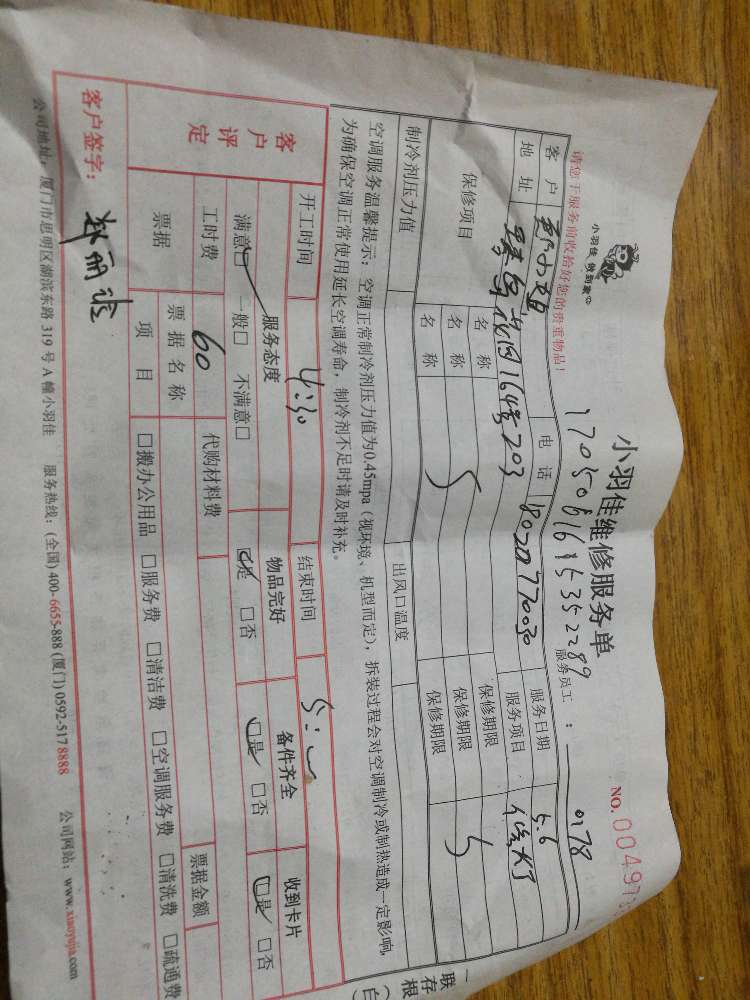 小羽佳维修服务单
小羽佳 做到家
NO. 00497
170506161535 2289
服务员工： 0178
请您于服务前收拾好您的贵重物品！
客户 郭小姐 电话 18020777030 服务日期 5.6
地址 164号203 服务项目 修灯
保修项目 名称 保修期限
名称 保修期限
名称 保修期限
制冷剂压力值 出风口温度
空调服务温馨提示：空调正常制冷剂压力值为0.45mpa（视环境、机型而定），拆装过程会对空调制冷或制热造成一定影响，
为确保空调正常使用延长空调寿命，制冷剂不足时请及时补充。
开工时间 4:30 结束时间 5:
客户评定 服务态度 物品完好 备件齐全 收到卡片
满意□ 一般□ 不满意□ □是 □否 □是 □否 □是 □否
工时费 60 代购材料费
票据 票据名称 票据金额
项目 □搬办公用品 □服务费 □清洁费 □空调服务费 □清洗费 □疏通费
客户签字：
公司地址：厦门市思明区湖滨东路 319 号 A 幢小羽佳 服务热线：(全国) 400-6655-888 (厦门) 0592-517 8888 公司网站：www.xiaoyujia.com
一联存根（白